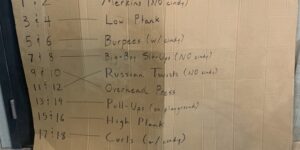 1 & 2 Merkins (NO cindy)
3 & 4 Low Plank
5 & 6 Burpees (w/ cindy)
7 & 8 Big-Boy Sit-Ups (NO cindy)
9 & 10 Russian Twists (NO cindy)
11 & 12 Overhead Press
13 & 14 Pull-Ups (on playground)
15 & 16 High Plank
17 & 18 Curls (w/ cindy)